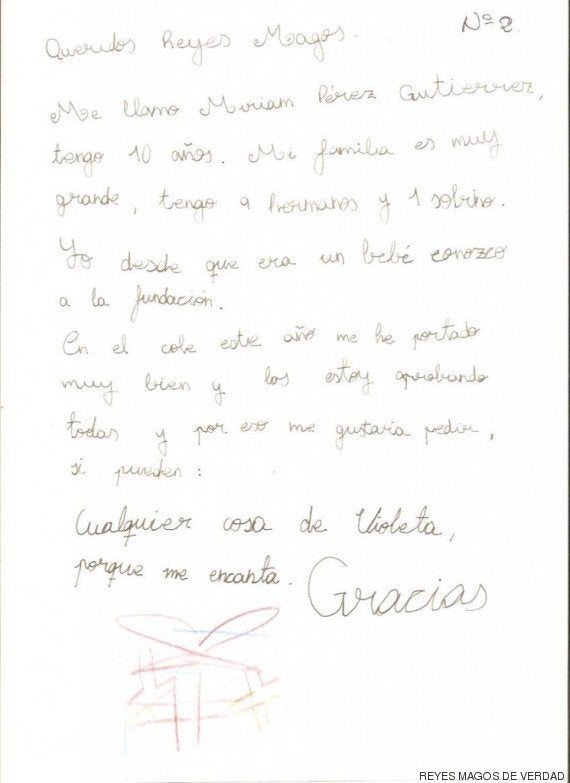 Nº 2.
Queridos Reyes Magos.
Me llamo Miriam Pérez Gutierrez,
tengo 10 años. Mi familia es muy
grande, tengo 9 hermanos y 1 sobrino.
Yo desde que era un bebé conozco
a la fundación.
En el cole este año me he portado
muy bien y las estoy aprobando
todas y por eso me gustaria pedir,
si pueden :
Cualquier cosa de Violeta,
porque me encanta. Gracias
REYES MAGOS DE VERDAD